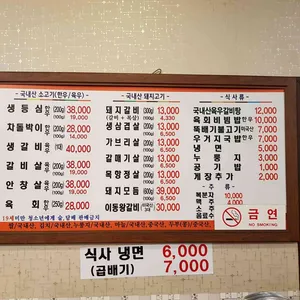 국내산 소고기(한우/육우)
생등심 한우 (200g) 38,000
육우 (100g) 19,000
차돌박이 한우 (200g) 28,000
생갈비 육우 (1대) 40,000
갈비살 한우 (200g) 38,000
육우 (100g) 19,000
안창살 한우 (200g) 38,000
육우 (100g) 19,000
육회 한우 (200g) 28,000
국내산 돼지고기
돼지갈비 (300g) 13,000
(갈비+목살) 4,330
생삼겹살 (200g) 13,000
6,500
가브리살 (200g) 13,000
6,500
갈매기살 (200g) 13,000
6,500
목항정살 (200g) 13,000
6,500
돼지모듬 (600g) 39,000
6,500
이동왕갈비 30,000
식사류
국내산육우갈비탕 12,000
육회비빔밥 한우 10,000
뚝배기불고기 미국산 7,000
우거지국밥 한우 7,000
냉면 5,000
누룽지 3,000
공기밥 1,000
게장추가
주류
복분자 10,000
맥주 4,000
소주 4,000
음료수
금연
NO SMOKING
19세미만 청소년에게 술,담배 판매금지
쌀/국내산, 김치/국내산,
식사 냉면 6,000
(곱배기) 7,000